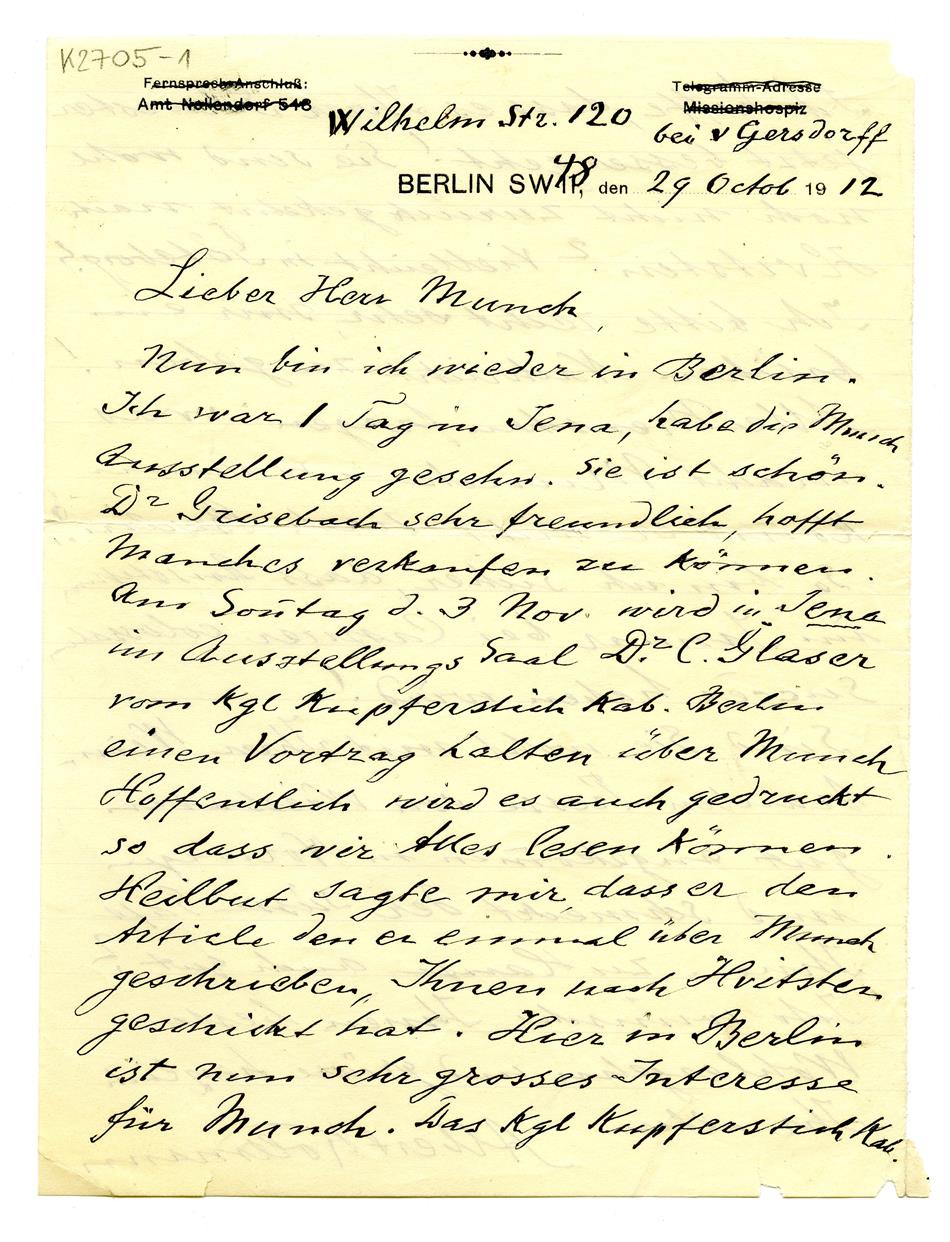 K2705-1
Fernsprech-Anschluß: Telegramm-Adresse
Amt Nollendorf 546 Missionshospiz
Wilhelm Str. 120 bei v Gersdorff
BERLIN SW 48, den 29 Octob 1912
Lieber Herr Munch,
Nun bin ich wieder in Berlin.
Ich war 1 Tag in Jena, habe die Munch
Ausstellung gesehn. Sie ist schön.
Dr Grisebach sehr freundlich, hofft
Manches verkaufen zu können.
Am Son̄tag d. 3 Nov. wird in Jena
im Ausstellungs Saal Dr. C. Glaser
vom Kgl Kupferstich Kab. Berlin
einen Vortrag halten über Munch
Hoffentlich wird es auch gedruckt
so dass wir Alles lesen können.
Heilbut sagte mir, dass er den
Article den er einmal über Munch
geschrieben, Ihnen nach Hvitsten
geschickt hat. Hier in Berlin
ist nun sehr grosses Interesse
für Munch. Das Kgl Kupferstich Kab.